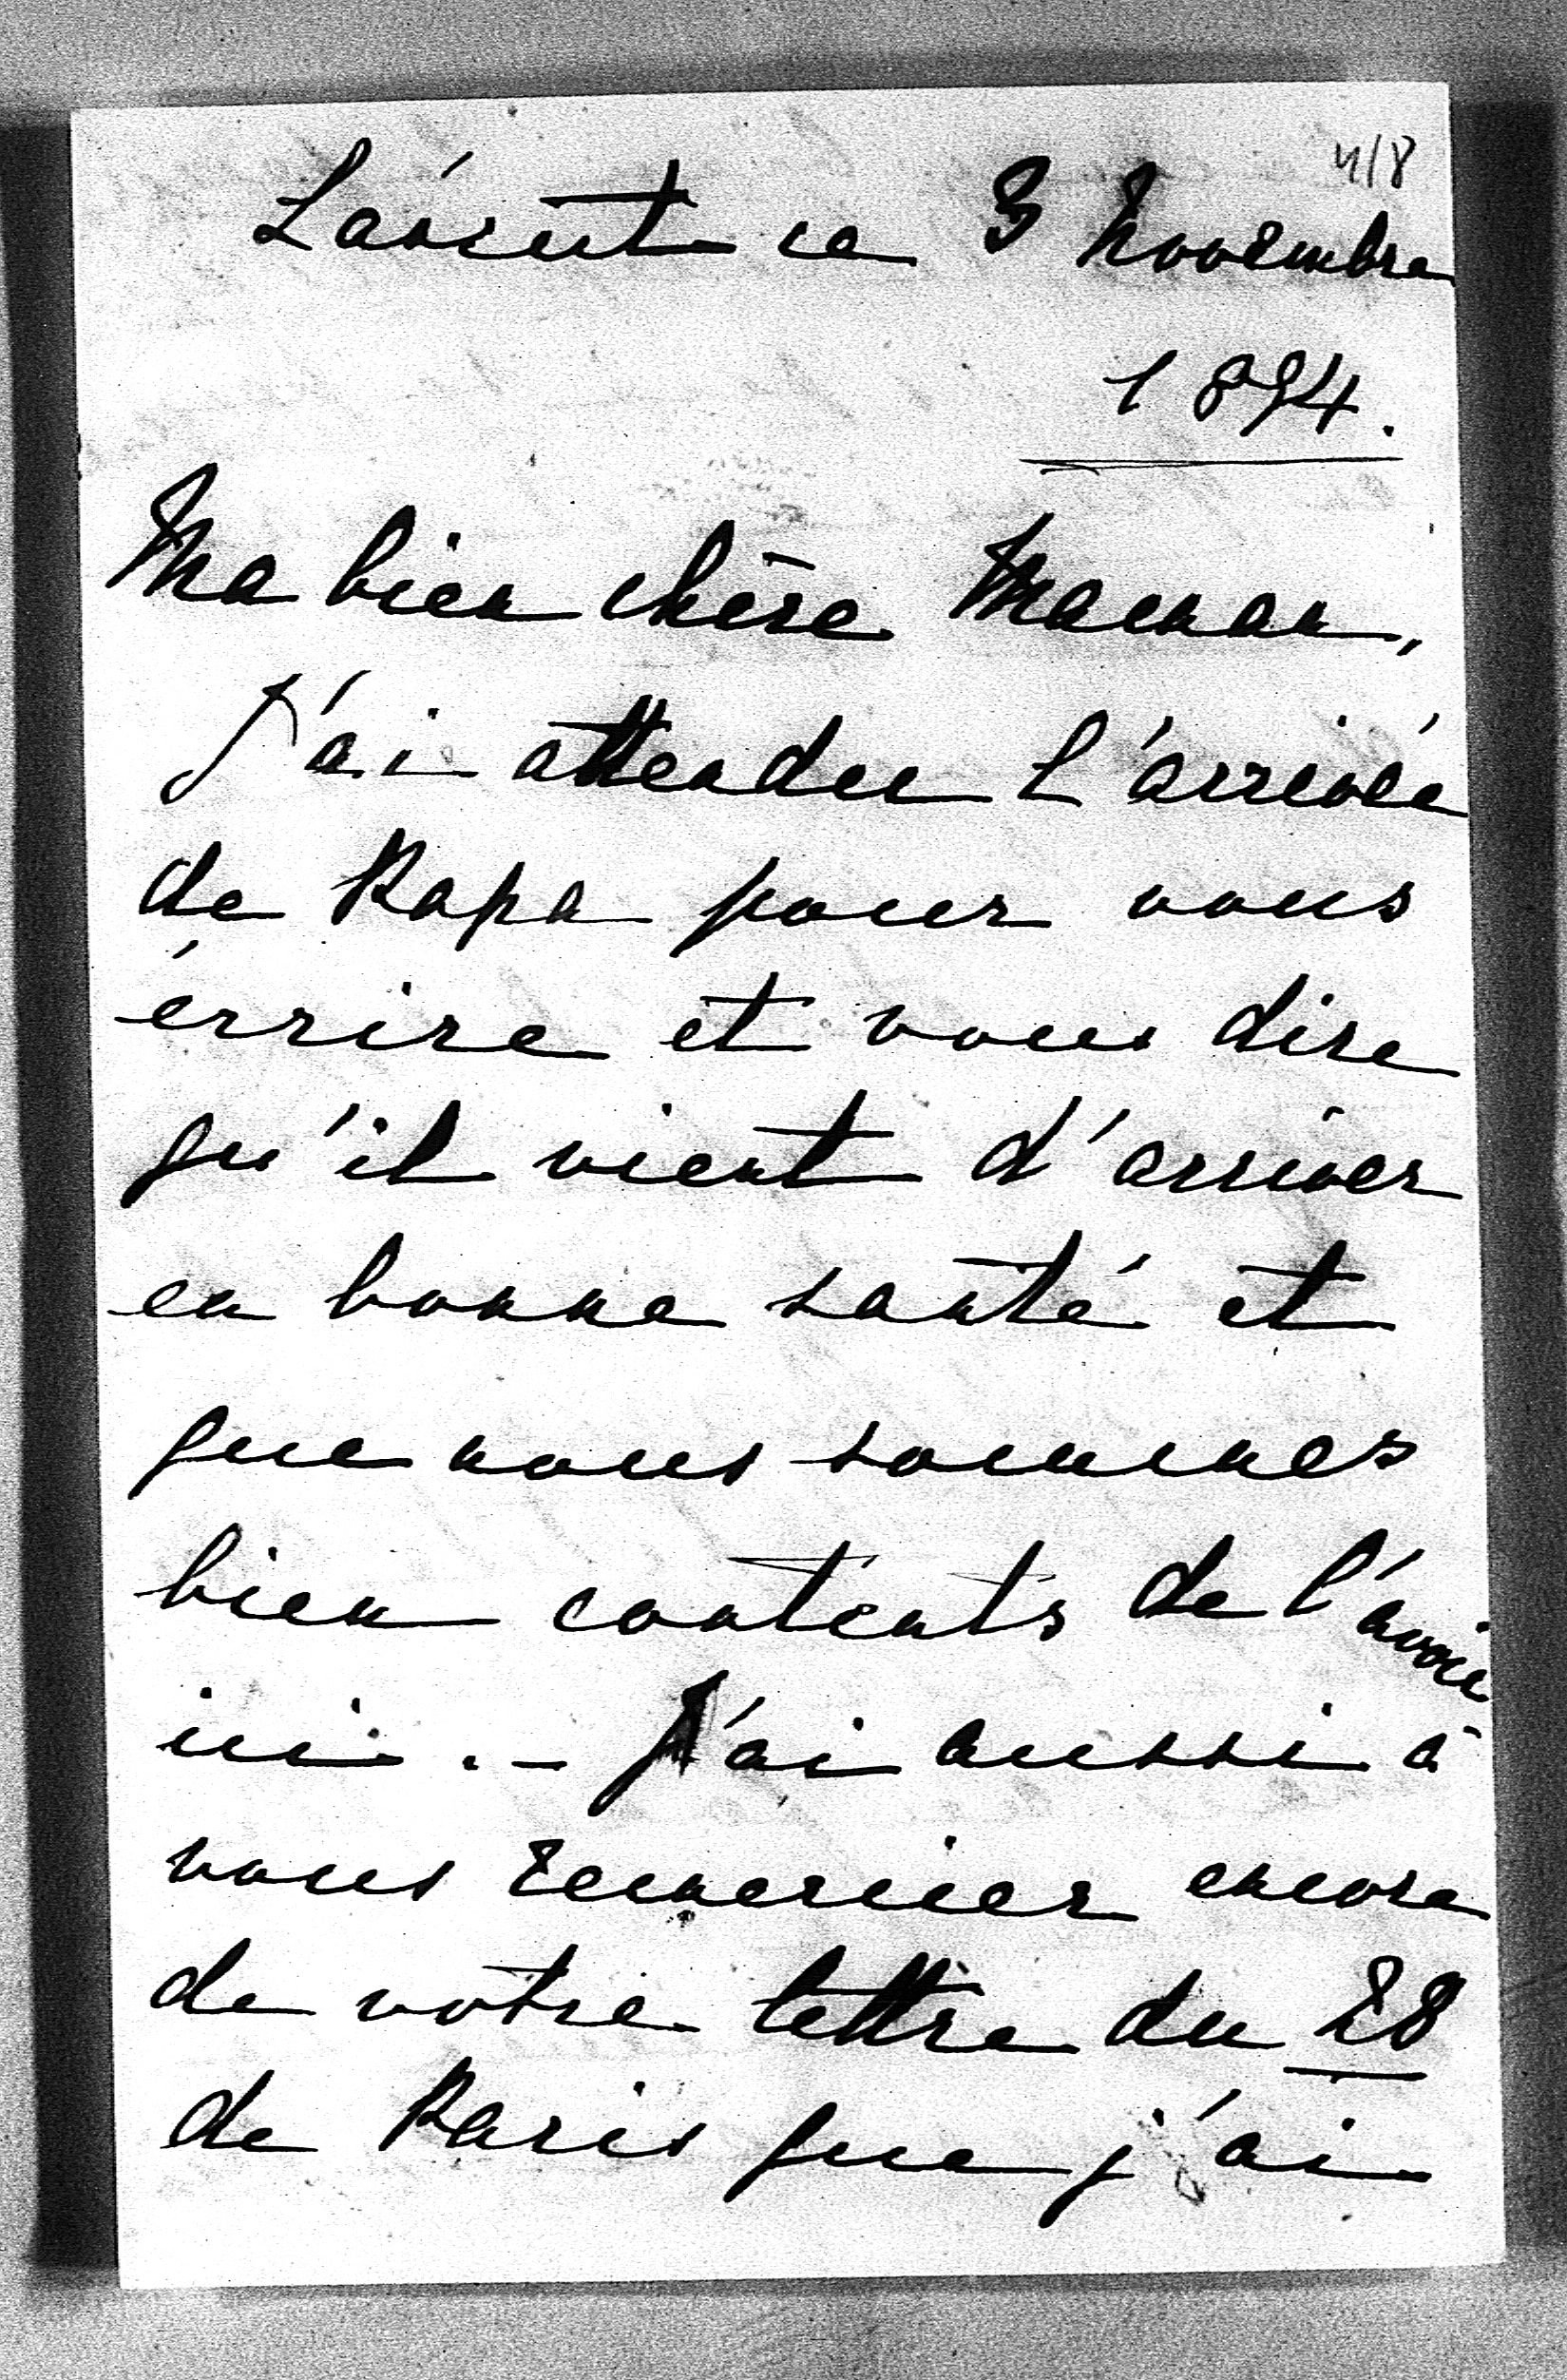 4/8
ce 3 Novembre
1894.
Ma bien chère Maman,
J'ai attendu l'arrivée
de Papa pour vous
écrire et vous dire
qu'il vient d'arriver
en bonne santé et
que nous sommes
bien contents de l'avoir
ici. - J'ai aussi à
vous remercier encore
de votre lettre du 28
de Paris que j'ai